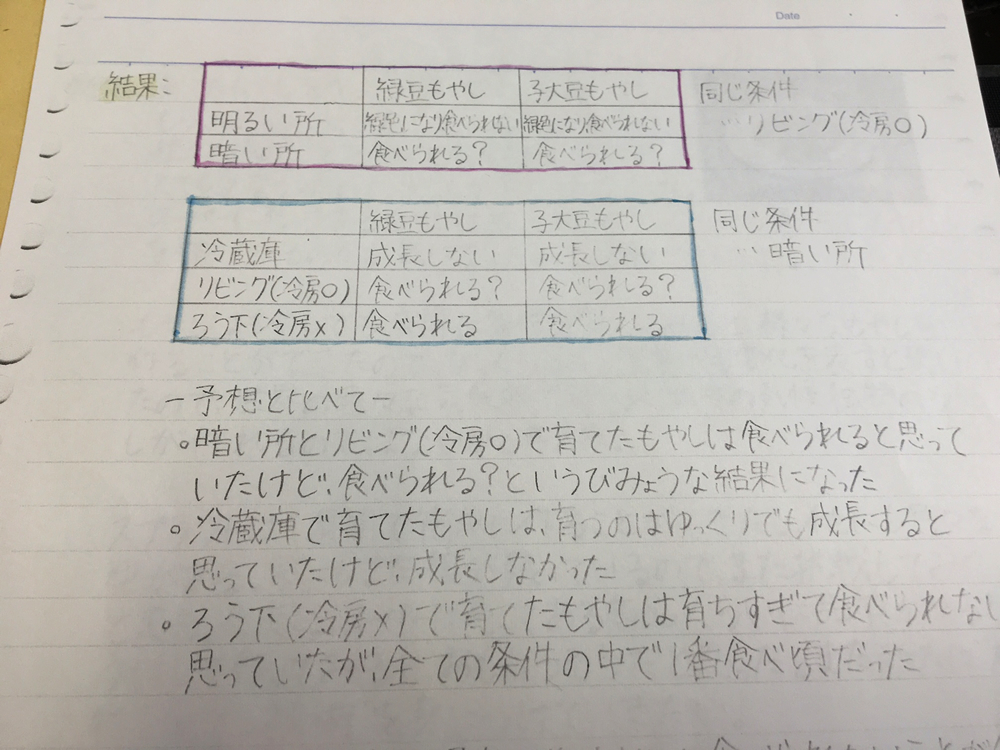 Date
結果:
緑豆もやし 子大豆もやし
明るい所 緑色になり食べられない 緑色になり食べられない
暗い所 食べられる? 食べられる?
同じ条件
…リビング(冷房○)
緑豆もやし 子大豆もやし
冷蔵庫 成長しない 成長しない
リビング(冷房○) 食べられる? 食べられる?
ろう下(冷房×) 食べられる 食べられる
同じ条件
…暗い所
ー予想と比べてー
。暗い所とリビング(冷房○)で育てたもやしは食べられると思って
いたけど、食べられる?というびみょうな結果になった
。冷蔵庫で育てたもやしは、育つのはゆっくりでも成長すると
思っていたけど、成長しなかった
。ろう下(冷房×)で育てたもやしは育ちすぎて食べられない
思っていたが、全ての条件の中で1番食べ頃だった